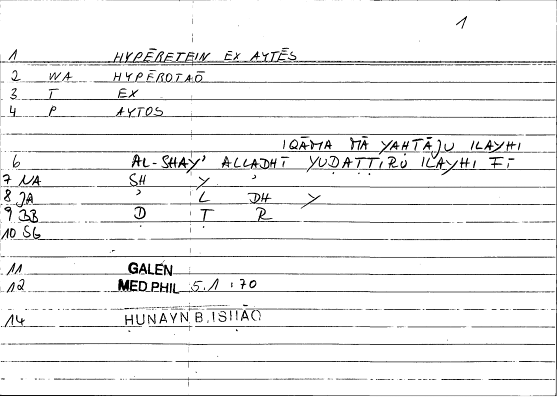 1
1 HYPĒRETEIN EX AYTĒS
2 WA HYPĒROTAŌ
3 T EX
4 P AYTOS
IQĀMA MĀ YAHTĀJU ILAYHI
6 AL-SHAY' ALLADHĪ YUDATTIRU ILAYHI FĪ
7 NA SH Y '
8 JA ' L DH Y
9 BB D T R
10 SG
11 GALEN
12 MED.PHIL 5.1 : 70
14 HUNAYN B. ISHĀQ